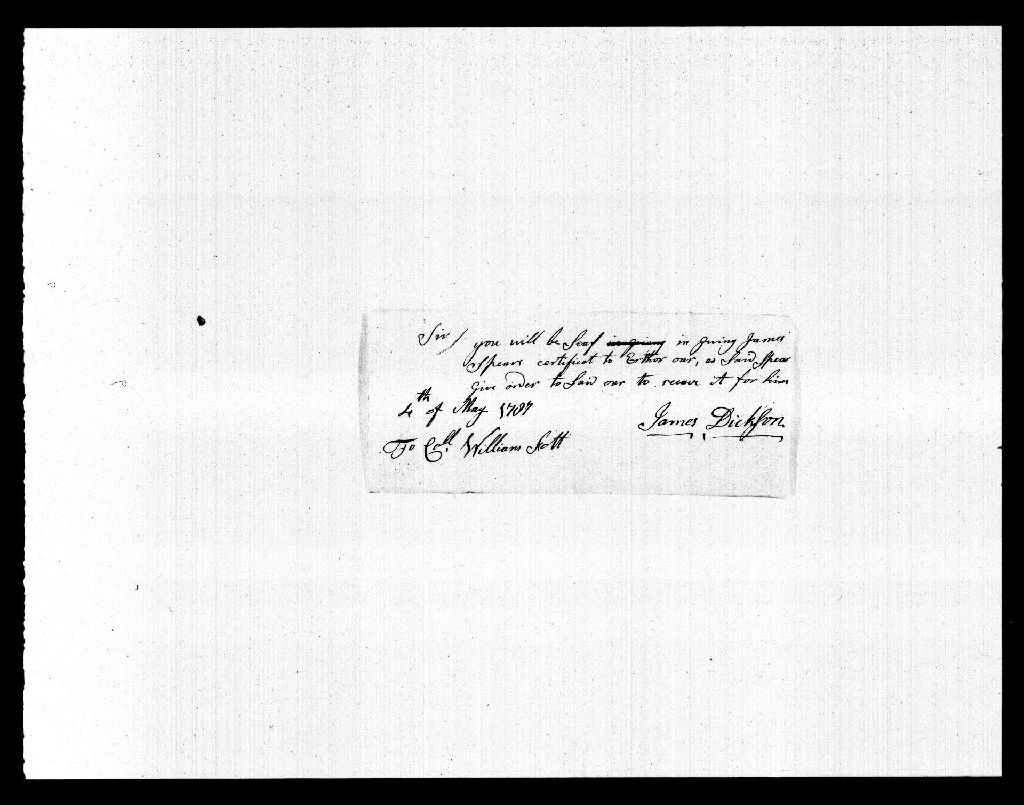 Sir / you will be Seaf in giving in giving James
Spears certificat to Erthor our, as Said Spear
give order to Said our to receve it for him
4th of May 1787
James Dickson
To Coll. William Scott